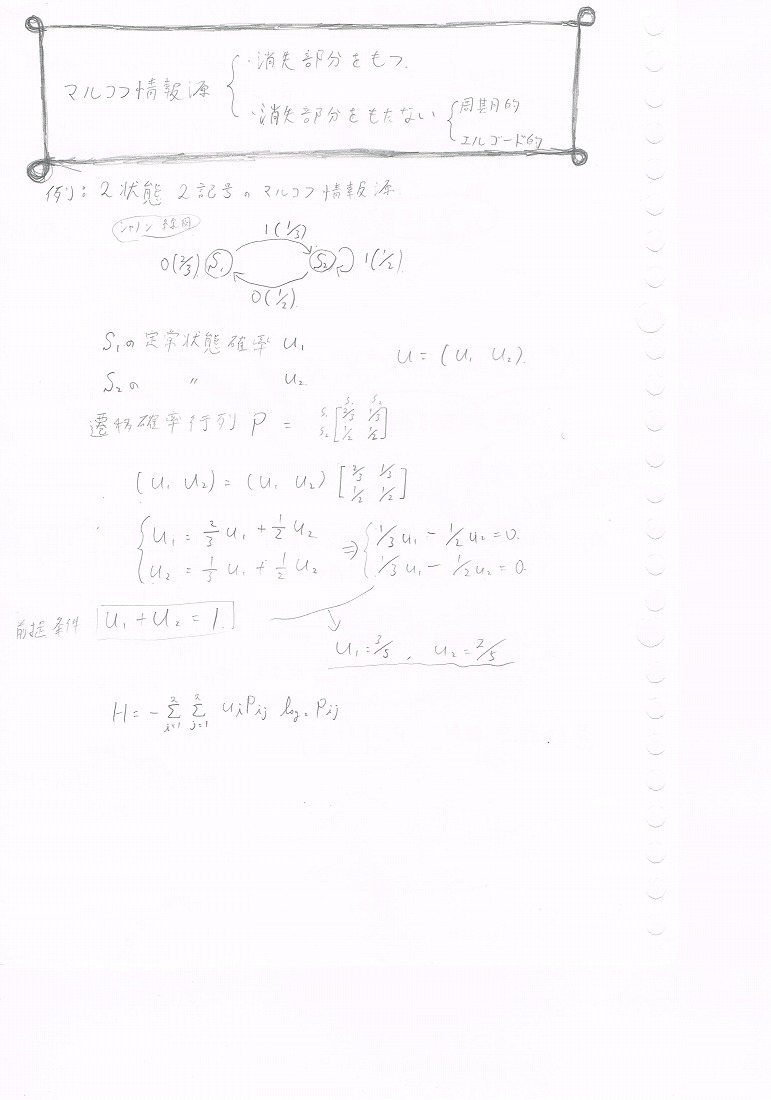 マルコフ情報源
・消失部分をもつ.
・消失部分をもたない
周期的
エルゴード的
例): 2状態 2記号のマルコフ情報源.
シャノン線図
1(1/3)
0(2/3) S₁ S₂ 1(1/2).
0(1/2).
S₁の定常状態確率 U₁
U = (U₁ U₂).
S₂の 〃 U₂.
S₁ S₂
遷移確率行列 P = S₁ S₂ [2/3 1/3 1/2 1/2]
(U₁ U₂) = (U₁ U₂) [2/3 1/3 1/2 1/2]
U₁ = 2/3 U₁ + 1/2 U₂ ⇒ 1/3 U₁ - 1/2 U₂ = 0.
U₂ = 1/3 U₁ + 1/2 U₂ 1/3 U₁ - 1/2 U₂ = 0.
前提条件 U₁ + U₂ = 1.
U₁ = 3/5 , U₂ = 2/5
H = - Σ_{i=1}^{2} Σ_{j=1}^{2} UiPij log₂ Pij